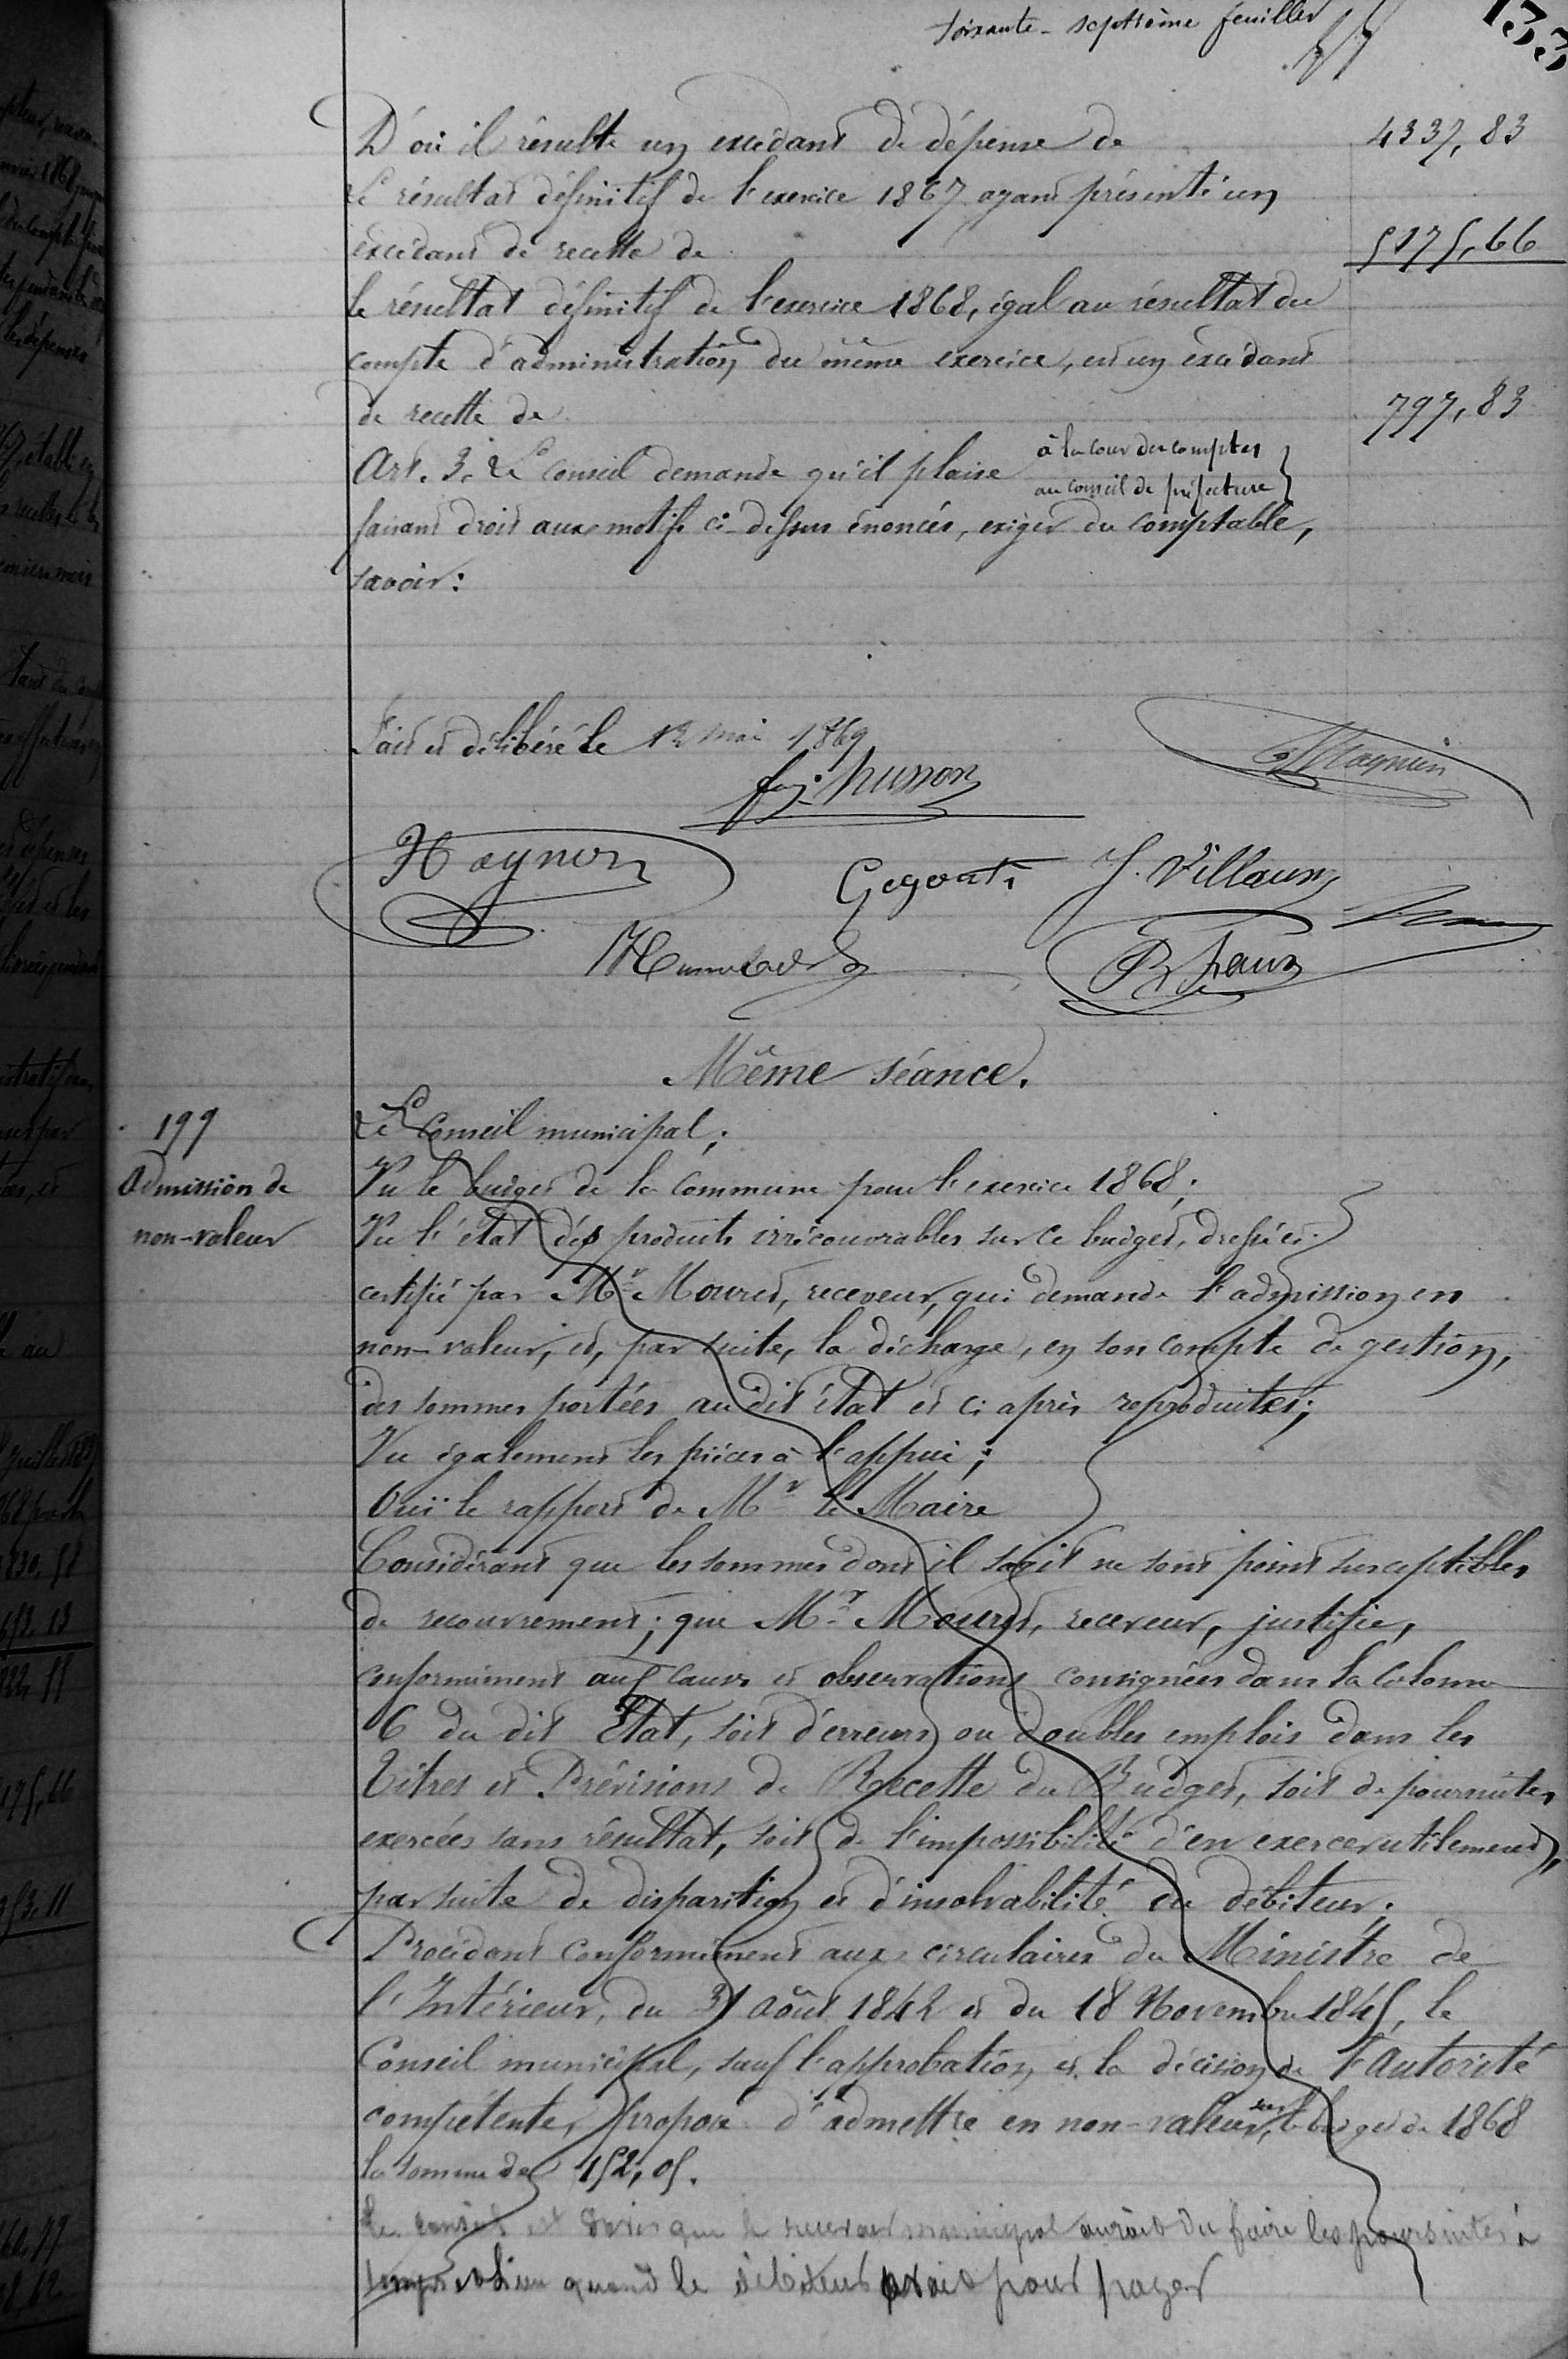 soixante-septième feuillet
133
D'où il résulte un excédant de dépense de 4337,83
Le résultat définitif de l'exercice 1867 ayant présenté un
excédant de recette de 5175,66
le résultat définitif de l'exercice 1868, égal au résultat du
compte d'administration du même exercice, est un excédant
de recette de 797,83
Art. 3. Le Conseil demande qu'il plaise à la cour des comptes
au conseil de préfecture
faisant droit aux motifs ci-dessus énoncés, exiger du comptable,
savoir:
Fait et délibéré le 12 mai 1869
Magnien
husson
Haynon
J. Villaun
Même séance.
199
Admission de
non-valeur
Le Conseil municipal;
Vu le budget de la commune pour l'exercice 1868;
Vu l'état des produits irrécouvrables sur ce budget, dressé et
certifié par Mr Mouret, receveur, qui demande l'admission en
non-valeur, et, par suite, la décharge, en son compte de gestion,
des sommes portées au dit état et ci après reproduites;
Vu également les pièces à l'appui;
Ouï le rapport de Mr le Maire
Considérant que les sommes dont il s'agit ne sont point susceptibles
de recouvrement; que Mr Mouret, receveur, justifie,
conformément aux causes et observations consignées dans la colonne
6 du dit Etat, soit d'erreurs ou doubles emplois dans les
Titres et Prévisions de Recette du Budget, soit de poursuites
exercées sans résultat, soit de l'impossibilité d'en exercer utilement,
par suite de disparition et d'insolvabilité du débiteur;
Procédant conformément aux circulaires du Ministre de
l'Intérieur, du 31 août 1842 et du 18 Novembre 1845, le
Conseil municipal, sauf l'approbation et la décision de l'Autorité
compétente, propose d'admettre en non-valeur, sur le budget de 1868
la somme de 152,05.
Le conseil est d'avis que le receveur municipal aurait du faire les poursuites à
temps et lieu quand le débiteur avait pour payer